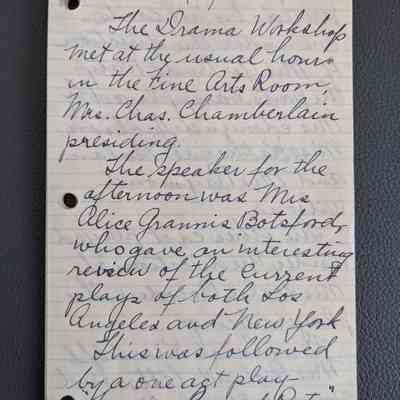 The Drama Workshop
met at the usual hour
in the Fine Arts Room,
Mrs. Chas. Chamberlain
presiding.
The speaker for the
afternoon was Mrs
Alice Grannis Botsford,
who gave an interesting
review of the current
plays of both Los
Angeles and New York
This was followed
by a one act play-